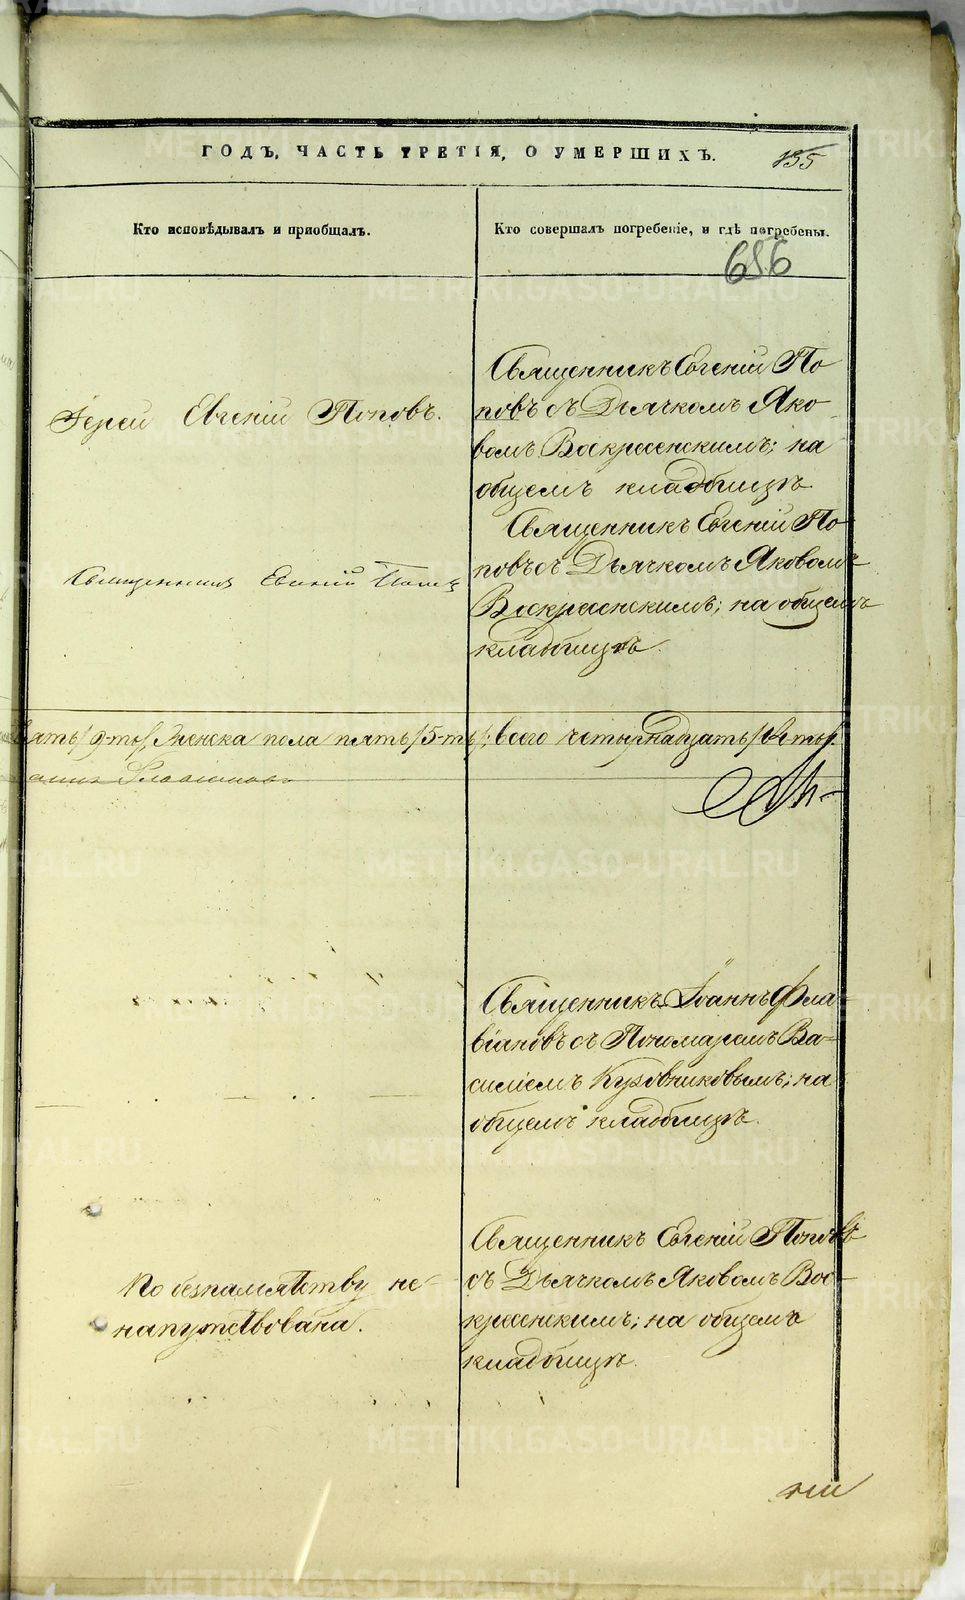 ГОДЪ, ЧАСТЬ ТРЕТІЯ, О УМЕРШИХЪ. 135
Кто исповѣдывалъ и пріобщалъ.
Кто совершалъ погребеніе, и гдѣ погребены.
656
Іерей Евгеній Поповъ.
Священникъ Евгеній По
повъ съ Дьячкомъ Яко
вомъ Воскресенскимъ; на
общемъ кладбищѣ.
Священникъ Евгеній Поповъ
Священникъ Евгеній По
повъ съ Дьячкомъ Яковомъ
Воскресенскимъ; на общемъ
кладбищѣ.
вять/9-ть/, Женска пола пять/5-ть/; всего четырнадцать
Священникъ Іоаннъ Фла
віановъ съ Пономаремъ Ва-
силіемъ Кузовниковымъ; на
общемъ кладбищѣ.
По безпамятству не-
напутствована.
Священникъ Евгеній Поповъ
съ Дьячкомъ Яковомъ Вос-
кресенскимъ; на общемъ
кладбищѣ.
METRIKI.GASO-URAL.RU